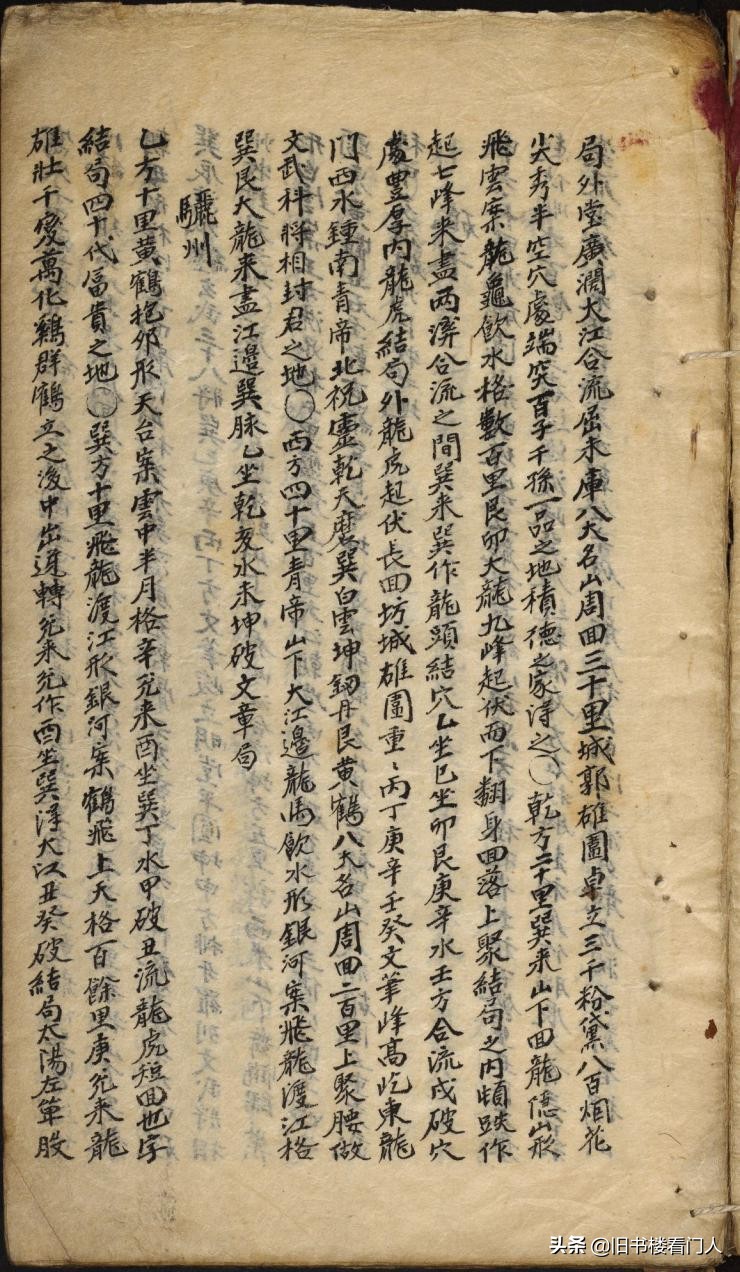 局外堂廣濶大江合流屈未庫八大名山周回三十里城郭雄圖卓立三千粉黛八百烟花
尖秀半空穴處端突百子千孫一品之地積德之家得之〇乾方二十里巽来山下回龍億山形
飛雲案龍龜飲水格數百里艮卯大龍九峰起伏而下翻身回落上聚結局之内頓跌作
起七峰来盡两濟合流之間巽来巽作龍頭結穴乙坐巳坐卯艮庚辛水壬方合流戌破穴
處豊厚内龍虎結局外龍虎起伏長回坊城雄圖重〻丙丁庚辛壬癸文筆峰高屹東龍
門西水鍾南青帝北祝靈乾天磨巽白雲坤釰丹艮黄鶴八大名山周回二百里上聚腰做
文武科將相封君之地〇西方四十里青帝山下大江邊龍馬飲水形銀河案飛龍渡江格
巽艮大龍来盡江邊巽脉乙坐乾亥水未坤破文章局
驪州
乙方十里黄鶴抱卵形天台案雲中半月格辛兊来酉坐巽丁水甲破丑流龍虎短回也字
結局四十代富貴之地〇巽方十里飛龍渡江形銀河案鶴飛上天格百餘里庚兊来龍
雄壮千変萬化鷄群鶴立之後中出逆轉兊来兊作酉坐巽得大江丑癸破結局太陽左單股
头条 @旧书楼看门人